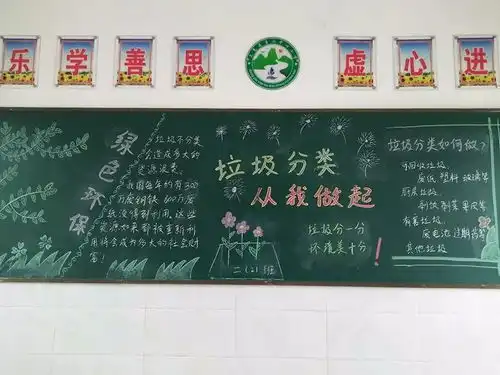 乐 学 善 思
虚 心 进
绿色环保
垃圾不分类
会造成多大的
资源浪费。
我国每年约有300
万废钢铁、600万废
纸没得到利用。这些
资源如果都被重新利
用将会成为强大的社会财
富！
垃圾分类
从我做起
垃圾分一分
环境美十分！
二（2）班
垃圾分类如何做？
可回收垃圾：
废纸 塑料 玻璃等
厨余垃圾：
剩饭剩菜 果皮等
有害垃圾：
废电池 过期药等
其他垃圾